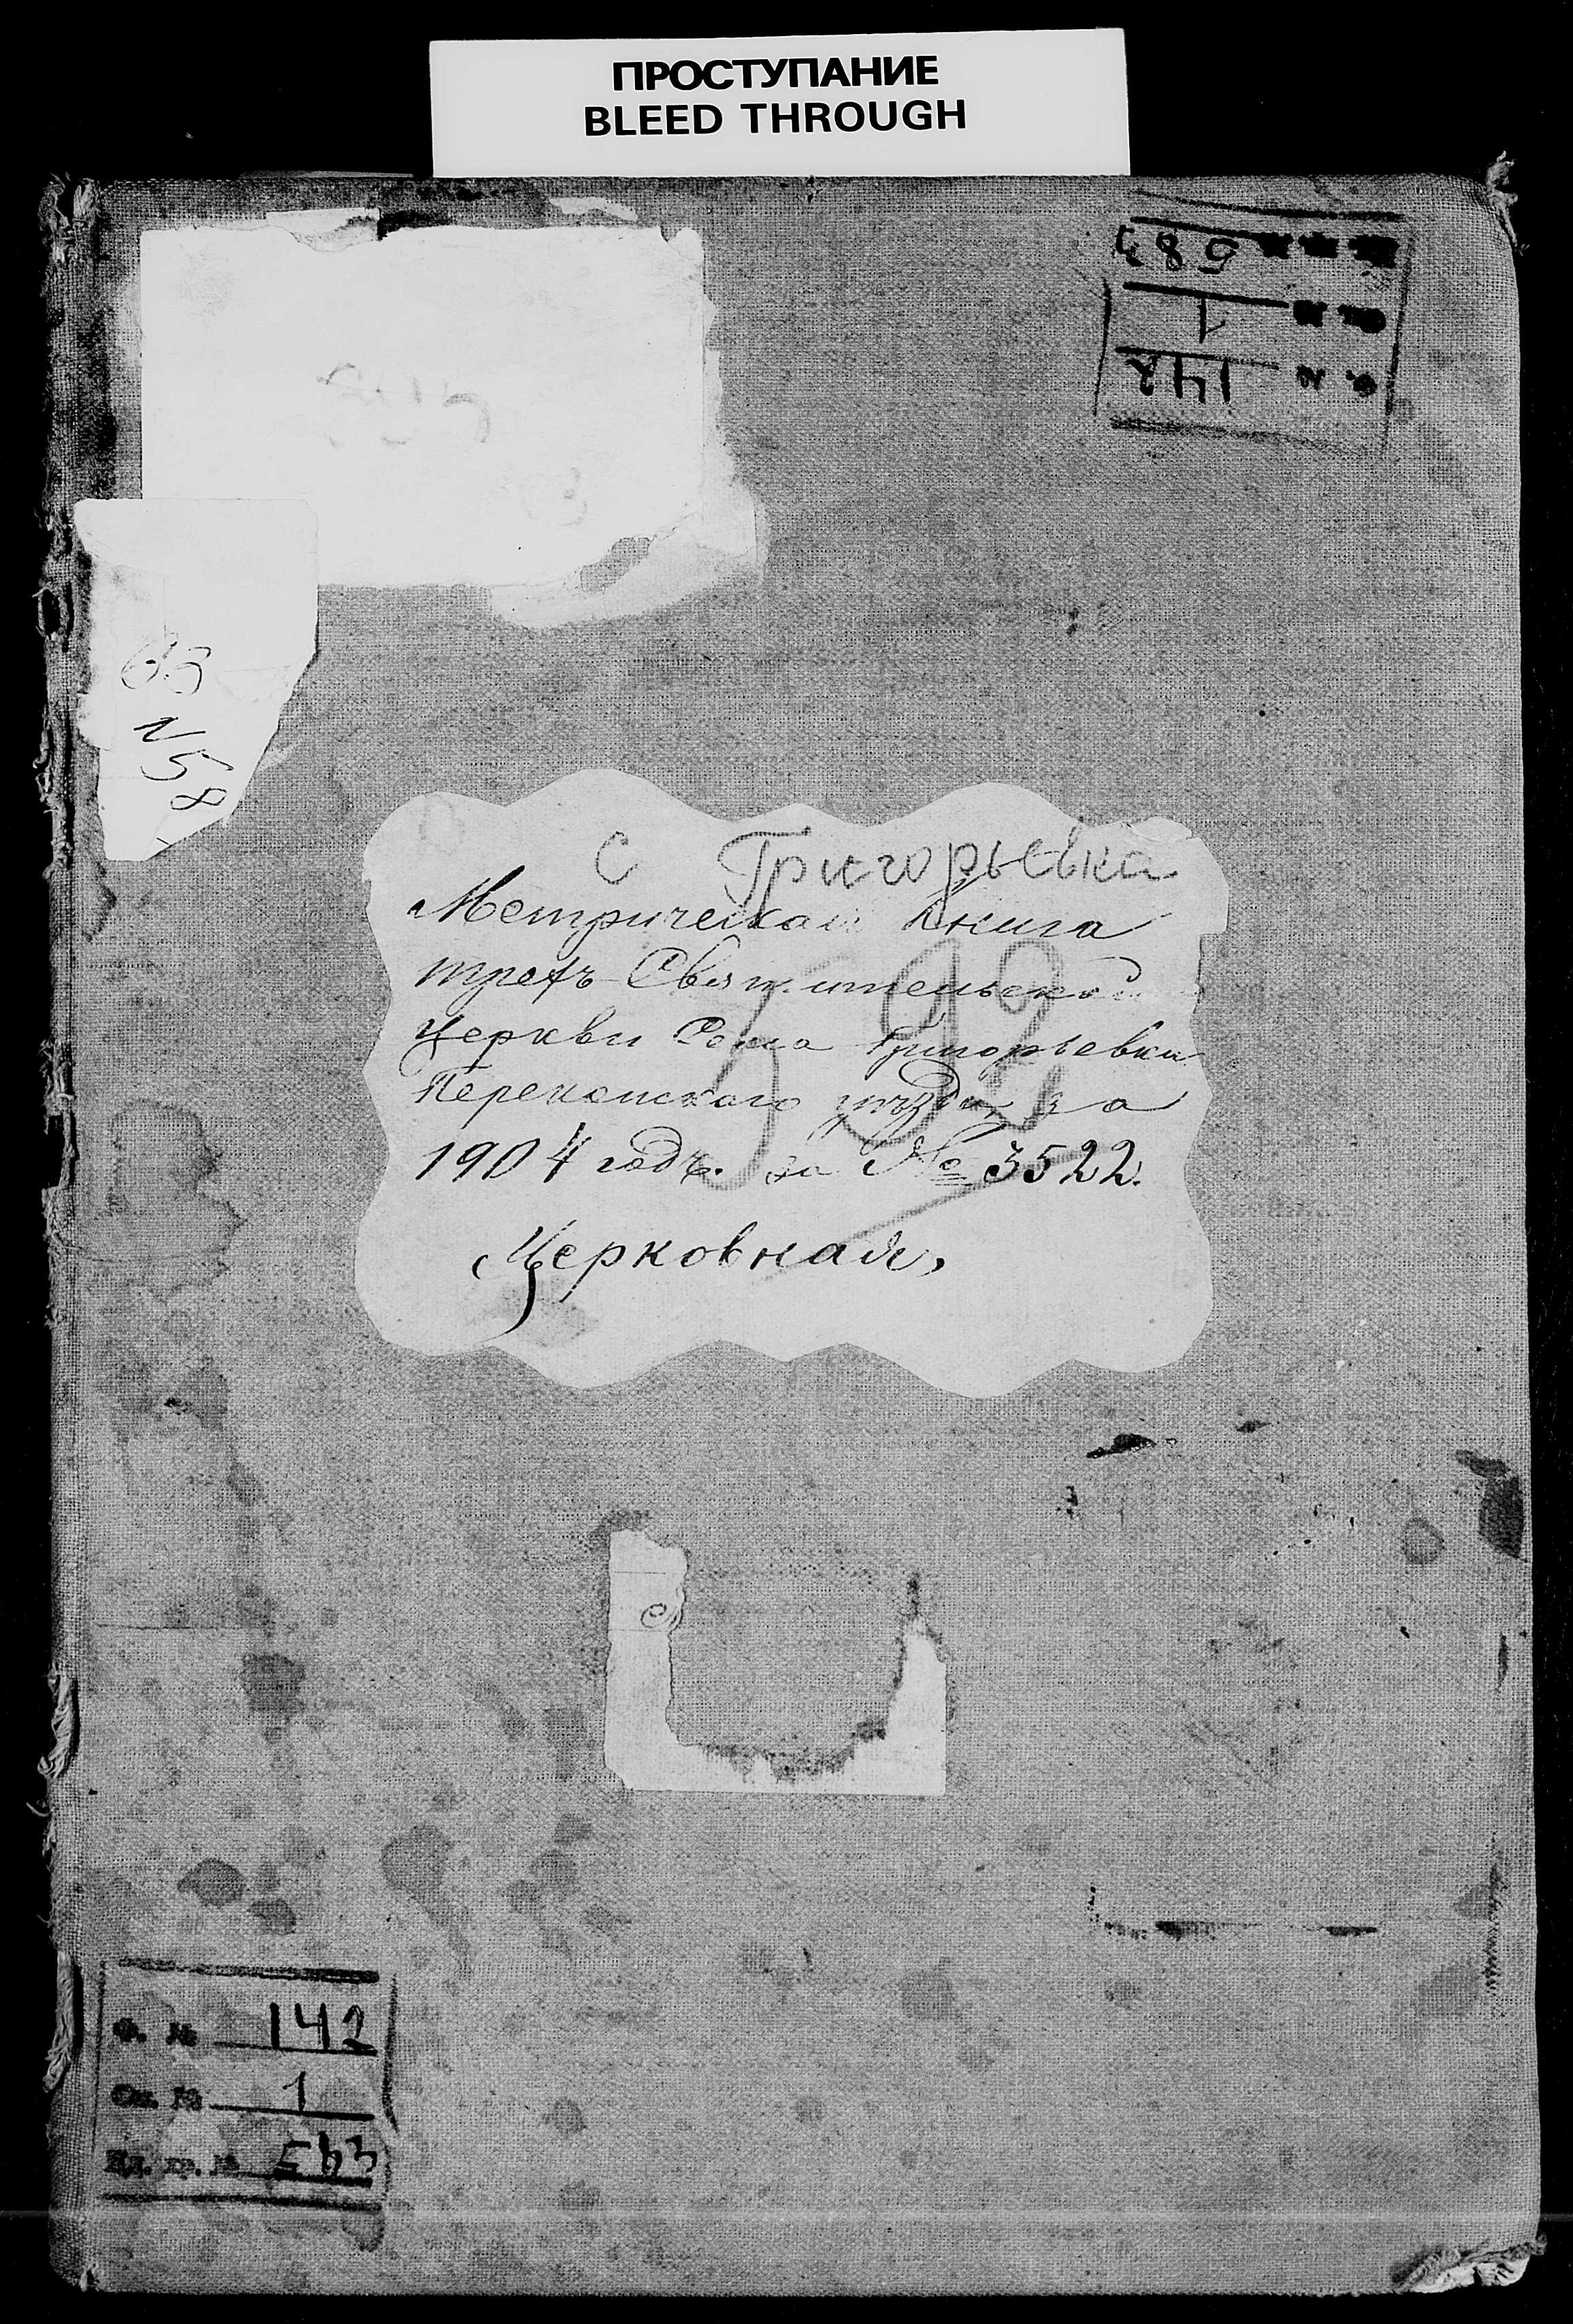 ПРОСТУПАНИЕ
BLEED THROUGH
Ф. № 142
Оп. № 1
583
N58
с Григорьевка
Метрическая книга
трехъ-Святительской
Церкви Села Григорьевки
Перекопского уѣзда за
1904 годъ. за № 3522.
Церковная,
Ф. № 142
Оп. № 1
Ед. хр. № 583